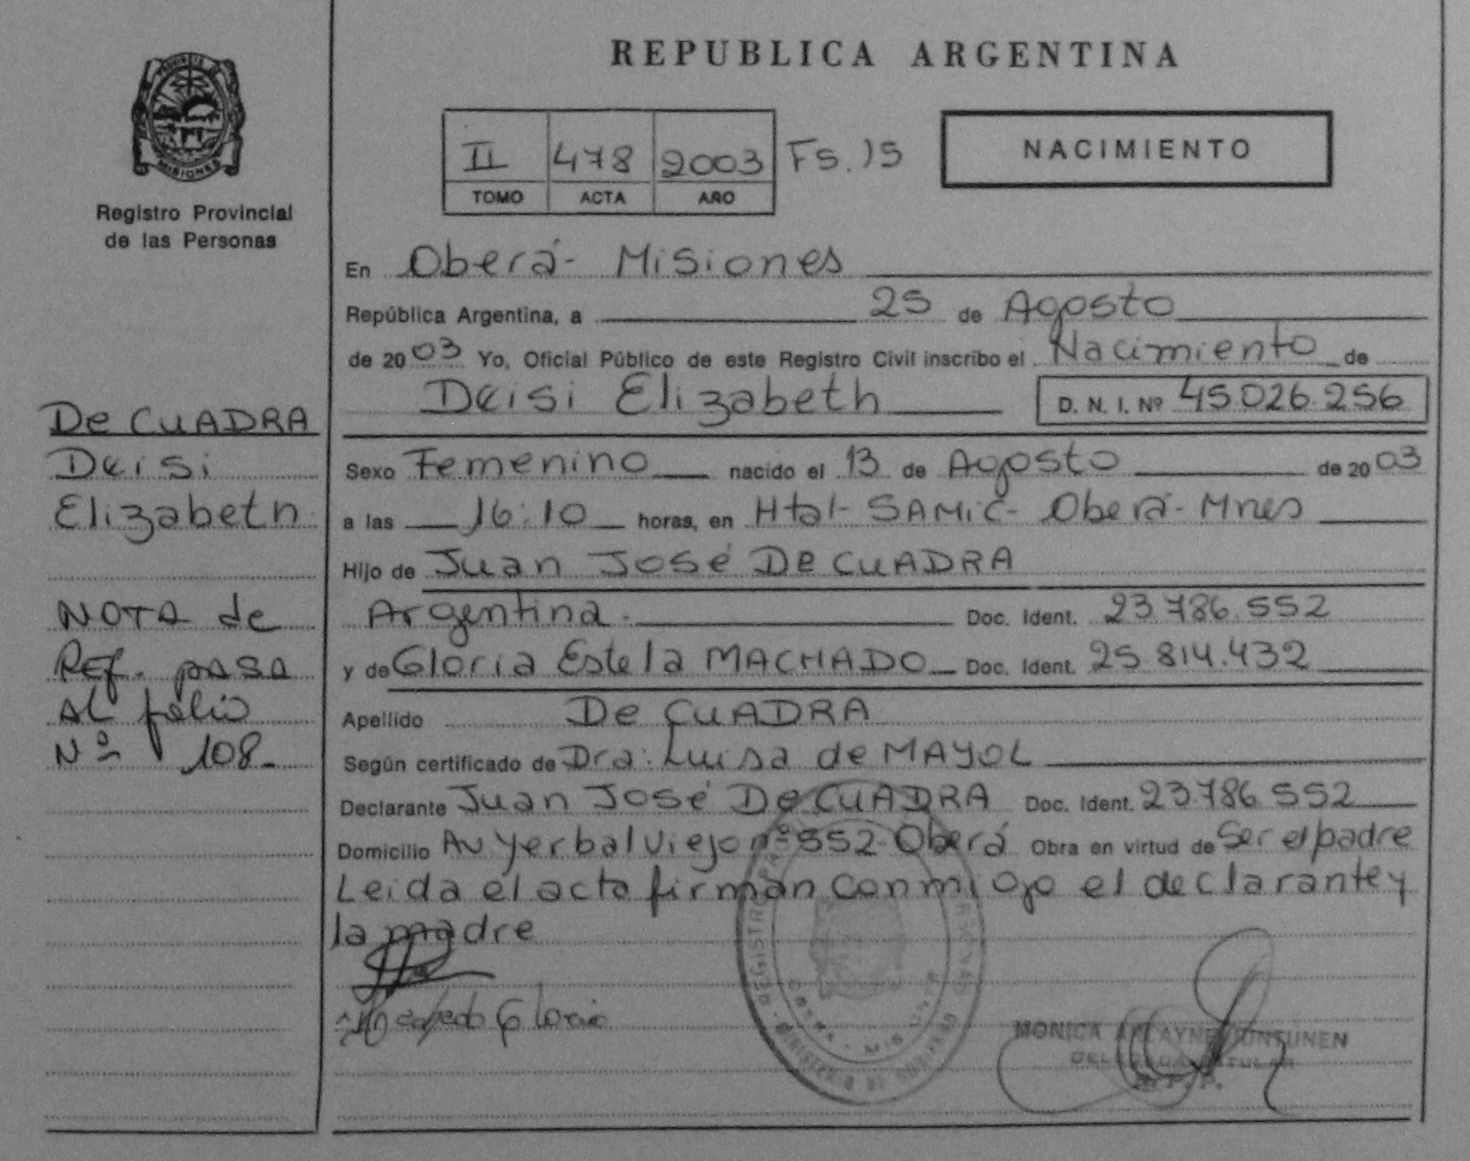 PROVINCIA DE
MISIONES
Registro Provincial
de las Personas
De CUADRA
Deisi
Elizabeth
NOTA de
Ref. pasa
al folio
Nº 108-
REPUBLICA ARGENTINA
II 478 2003 Fs. 15
TOMO ACTA AÑO
NACIMIENTO
En Oberá- Misiones
República Argentina, a 25 de Agosto
de 2003 Yo, Oficial Público de este Registro Civil inscribo el Nacimiento de
Deisi Elizabeth D. N. I. Nº 45.026.256
Sexo Femenino nacido el 13 de Agosto de 2003
a las 16:10 horas, en Htal- SAMIC- Oberá- Mnes
Hijo de Juan José De CUADRA
Argentina. Doc. Ident. 23.786.552
y de Gloria Estela MACHADO Doc. Ident. 25.814.432
Apellido De CUADRA
Según certificado de Dra: Luisa de MAYOL
Declarante Juan José De CUADRA Doc. Ident. 23.786.552
Domicilio Av Yerbal Viejo nº 552 Oberá Obra en virtud de Ser el padre
Leida el acta firman conmigo el declarante y
la madre
Machado Gloria
REGISTRO
OBERA - MISIONES
MINISTERIO DE GOBIERNO
MONICA
DELEGADA TITULAR
R. P. P.